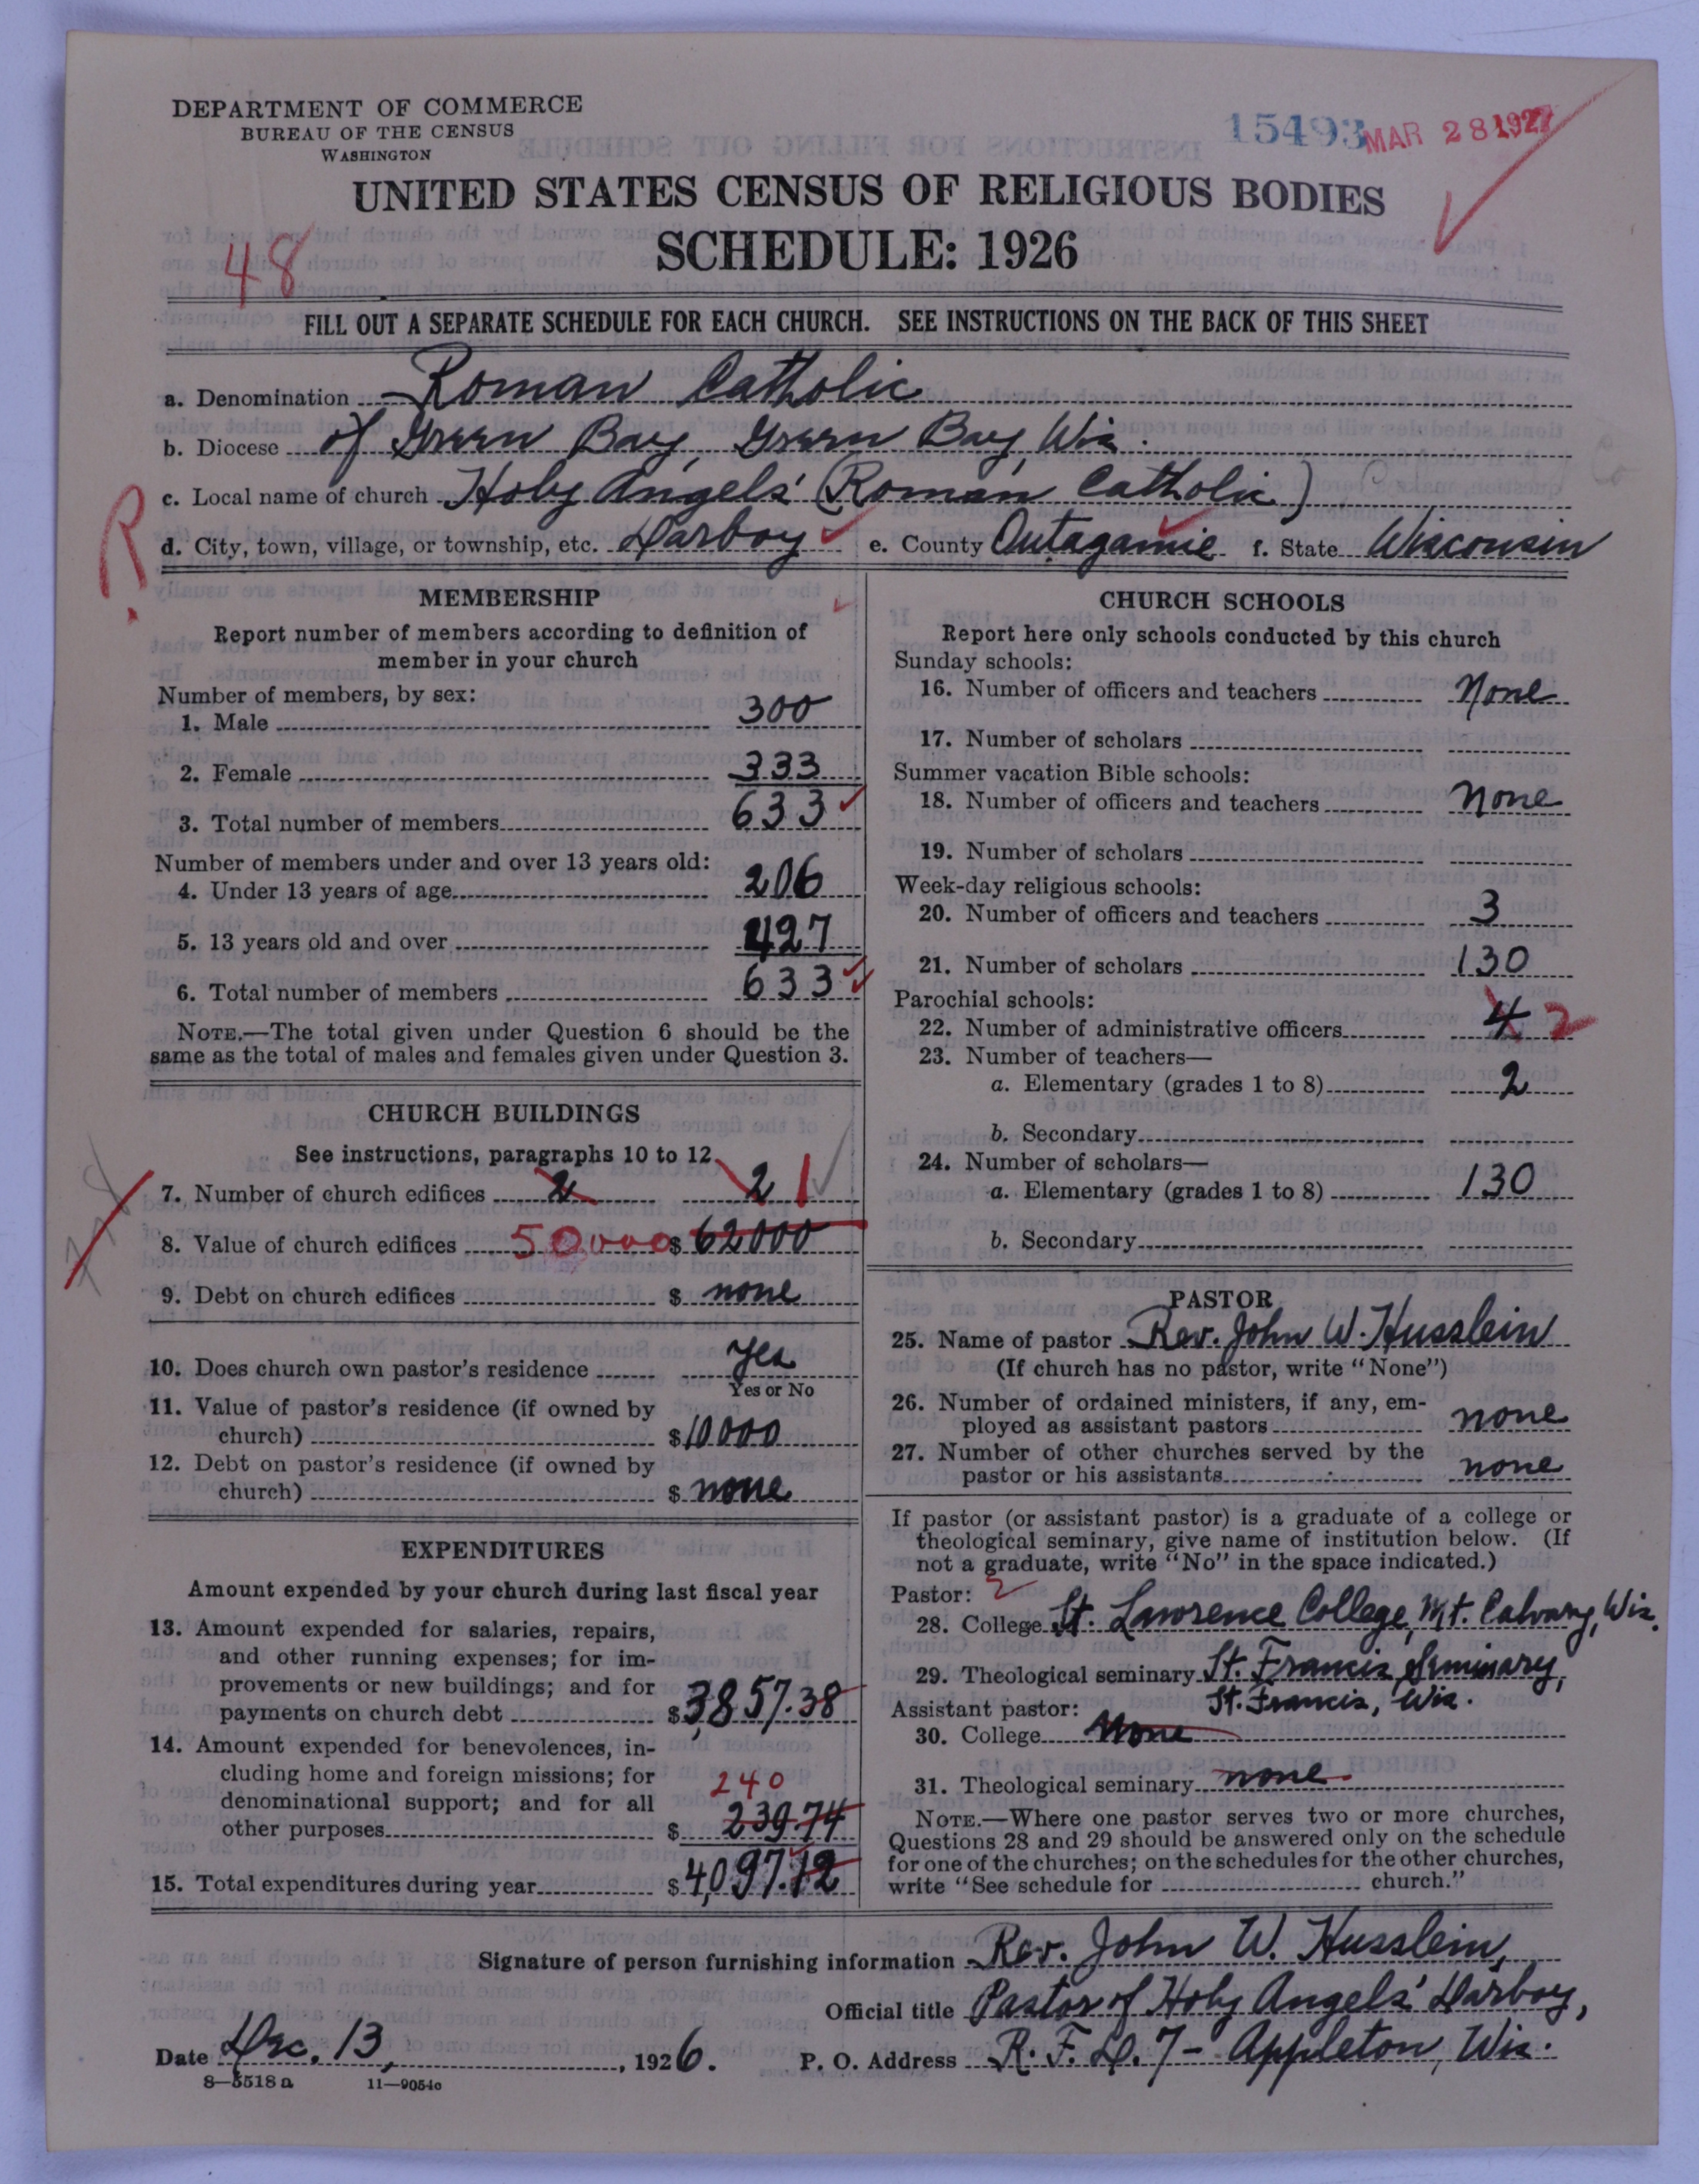 DEPARTMENT OF COMMERCE
BUREAU OF THE CENSUS
WASHINGTON
15493
MAR 28 1927
UNITED STATES CENSUS OF RELIGIOUS BODIES
SCHEDULE: 1926
48
FILL OUT A SEPARATE SCHEDULE FOR EACH CHURCH. SEE INSTRUCTIONS ON THE BACK OF THIS SHEET
a. Denomination Roman Catholic
b. Diocese of Green Bay, Green Bay, Wis.
c. Local name of church Holy Angels' (Roman Catholic)
R.
d. City, town, village, or township, etc. Darboy e. County Outagamie f. State Wisconsin
MEMBERSHIP
Report number of members according to definition of
member in your church
Number of members, by sex:
1. Male 300
2. Female 333
3. Total number of members 633
Number of members under and over 13 years old:
4. Under 13 years of age 206
5. 13 years old and over 427
6. Total number of members 633
NOTE.—The total given under Question 6 should be the
same as the total of males and females given under Question 3.
CHURCH BUILDINGS
See instructions, paragraphs 10 to 12
7. Number of church edifices 2 2 1
8. Value of church edifices 50,000 $ 62000
9. Debt on church edifices $ none
10. Does church own pastor's residence yes
Yes or No
11. Value of pastor's residence (if owned by
church) $10000
12. Debt on pastor's residence (if owned by
church) $ none
EXPENDITURES
Amount expended by your church during last fiscal year
13. Amount expended for salaries, repairs,
and other running expenses; for im-
provements or new buildings; and for
payments on church debt $3,857.38
14. Amount expended for benevolences, in-
cluding home and foreign missions; for
240
denominational support; and for all
other purposes $ 239.74
15. Total expenditures during year $4,097.12
CHURCH SCHOOLS
Report here only schools conducted by this church
Sunday schools:
16. Number of officers and teachers None
17. Number of scholars
Summer vacation Bible schools:
18. Number of officers and teachers None
19. Number of scholars
Week-day religious schools:
20. Number of officers and teachers 3
21. Number of scholars 130
Parochial schools:
22. Number of administrative officers 4 2
23. Number of teachers—
a. Elementary (grades 1 to 8) 2
b. Secondary
24. Number of scholars—
a. Elementary (grades 1 to 8) 130
b. Secondary
PASTOR
25. Name of pastor Rev. John W. Husslein
(If church has no pastor, write "None")
26. Number of ordained ministers, if any, em-
ployed as assistant pastors none
27. Number of other churches served by the
pastor or his assistants none
If pastor (or assistant pastor) is a graduate of a college or
theological seminary, give name of institution below. (If
not a graduate, write "No" in the space indicated.)
Pastor: 2
28. College St. Lawrence College, Mt. Calvary, Wis.
29. Theological seminary St. Francis Seminary,
Assistant pastor: St. Francis, Wis.
30. College None
31. Theological seminary none
NOTE.—Where one pastor serves two or more churches,
Questions 28 and 29 should be answered only on the schedule
for one of the churches; on the schedules for the other churches,
write "See schedule for church."
Signature of person furnishing information Rev. John W. Husslein,
Official title Pastor of Holy Angels' Darboy,
Date Dec. 13, , 1926. P. O. Address R. F. D. 7 - Appleton, Wis.
8—5518 a 11—9054c